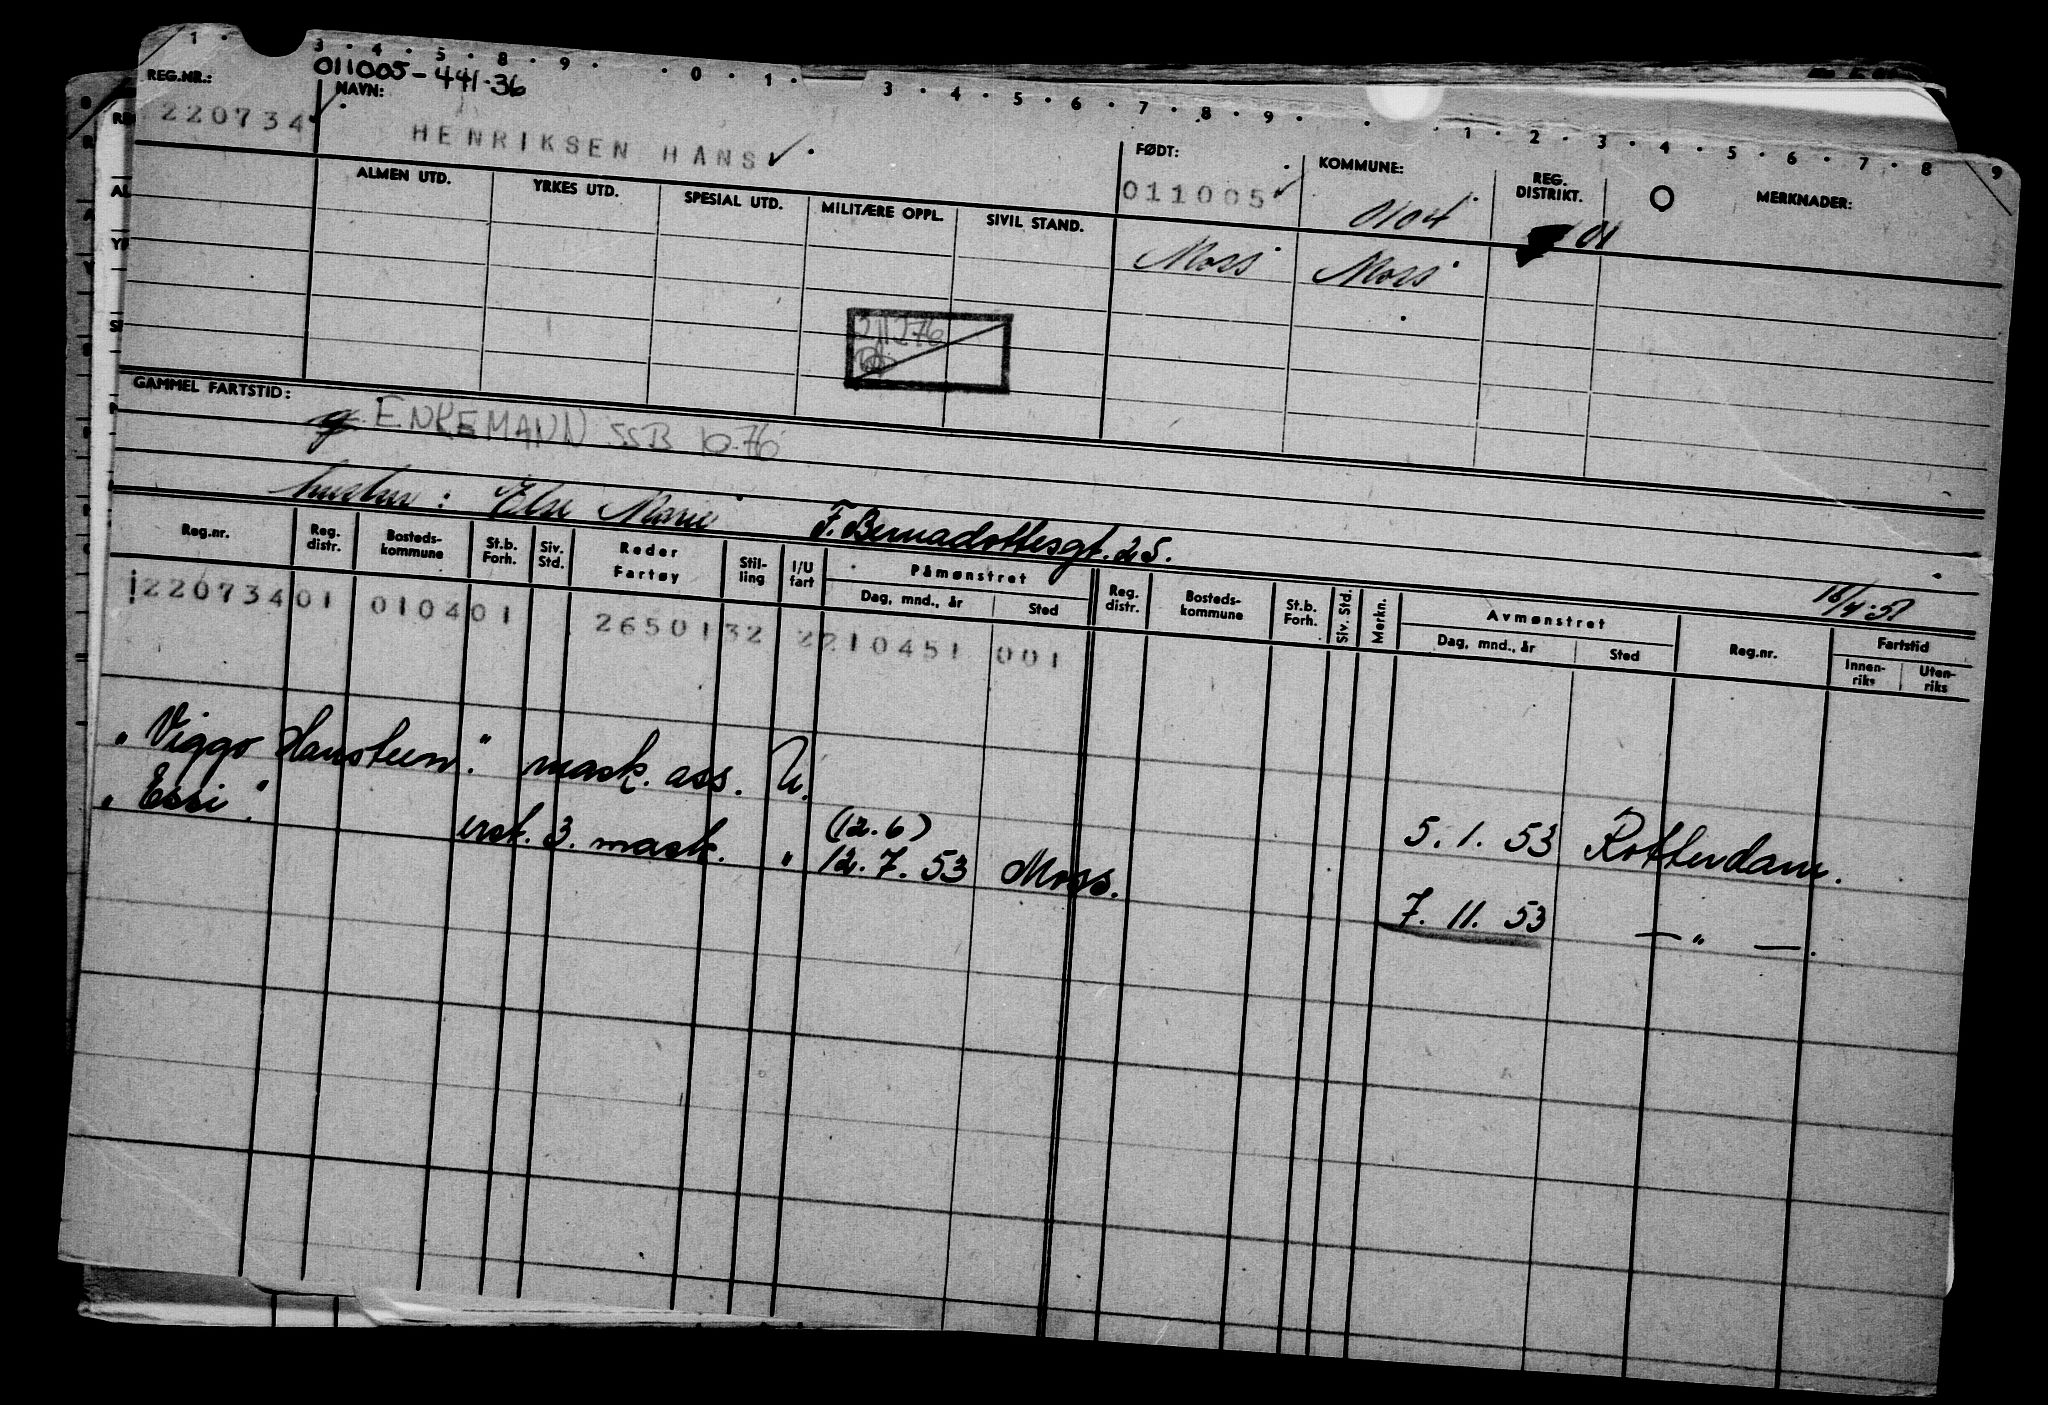 1 · 3 · 4 · 5 · 8 · 9 · · 0 · 1 · 3 · 4 · 5 · 6 · 7 · 8 · 9 · · 1 · 2 · 3 · 4 · 5 · 6 · 7 · 8 · 9
011005-441·36
REG.NR.: NAVN: FØDT: KOMMUNE: REG. DISTRIKT. MERKNADER:
220734 HENRIKSEN HANS ✓ 011005 ✓ 0104 01
ALMEN UTD. YRKES UTD. SPESIAL UTD. MILITÆRE OPPL. SIVIL STAND.
Moss Moss
211276
GAMMEL FARTSTID:
ENKEMANN SSB 10-76
hustru: Else Marie F. Bernadottesgt. 25.
18/4-51
Reg.nr. Reg. distr. Bosteds-kommune St.b. Forh. Siv. Std. Reder Fartøy Stil-ling I/U fart Påmønstret Dag, mnd., år Sted Reg. distr. Bosteds-kommune St.b. Forh. Siv. Std. Merkn. Avmønstret Dag, mnd., år Sted Reg.nr. Fartstid Innen-riks Uten-riks
220734 01 0104 01 26501 32 2 210451 001
"Viggo Hansteen." mask. ass. U. 5. 1. 53 Rotterdam.
(12.6)
"Essi". erst. 3. mask. " 12. 7. 53 Moss. 7. 11. 53 — " —.